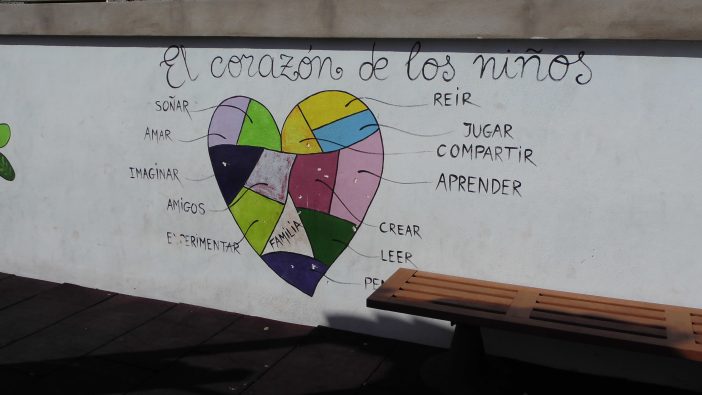 El corazón de los niños
SOÑAR
AMAR
IMAGINAR
AMIGOS
EXPERIMENTAR
FAMILIA
REIR
JUGAR
COMPARTIR
APRENDER
CREAR
LEER